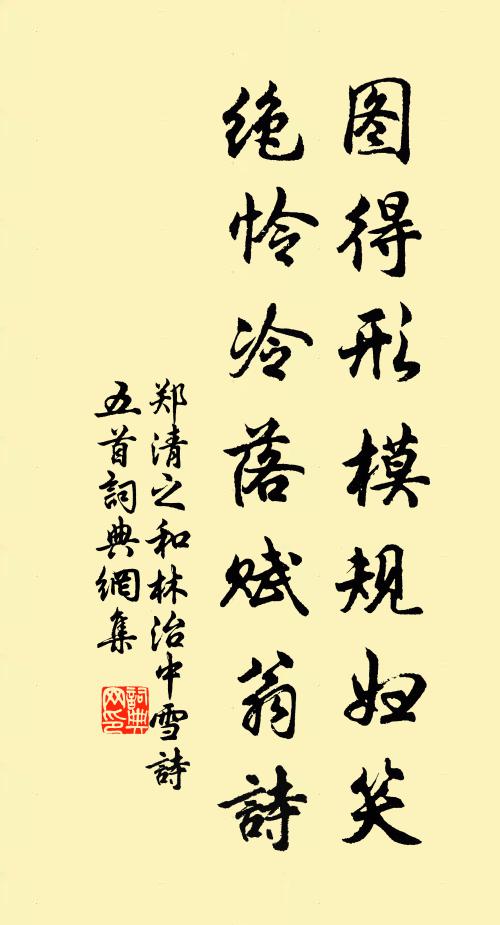 图得形模规妇笑
绝怜冷落赋翁詩
郑清之和林治中雪詩
五首詞典網集
詞典网印